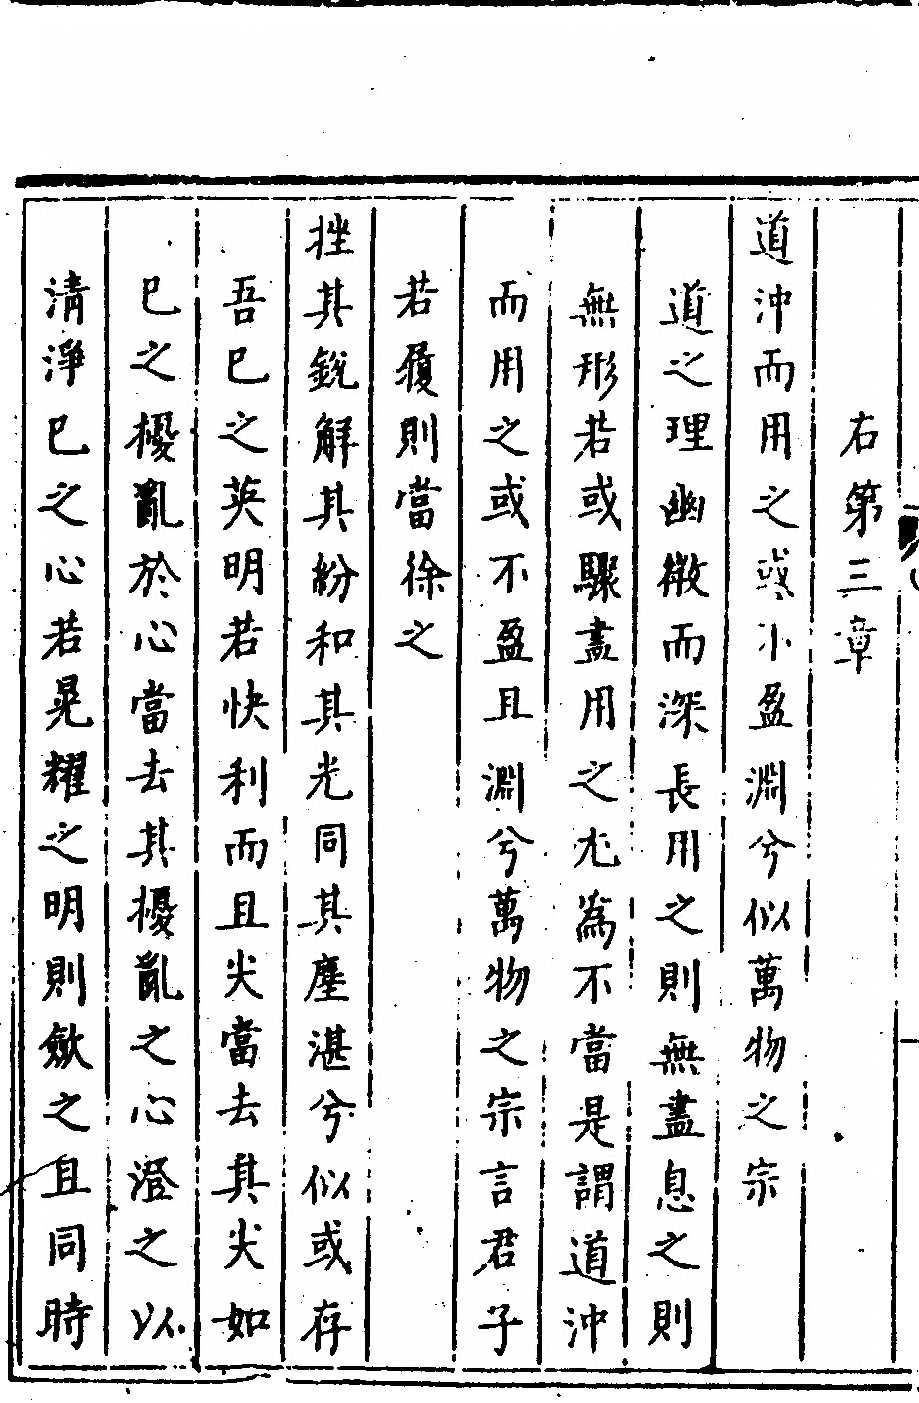 右第三章
道沖而用之或不盈淵兮似萬物之宗
道之理幽微而深長用之則無盡息之則
無形若或驟盡用之尤為不當是謂道沖
而用之或不盈且淵兮萬物之宗言君子
若履則當徐之
挫其銳解其紛和其光同其塵湛兮似或存
吾已之英明若快利而且尖當去其尖如
已之擾亂於心當去其擾亂之心澄之以
清淨已之心若晃耀之明則斂之且同時